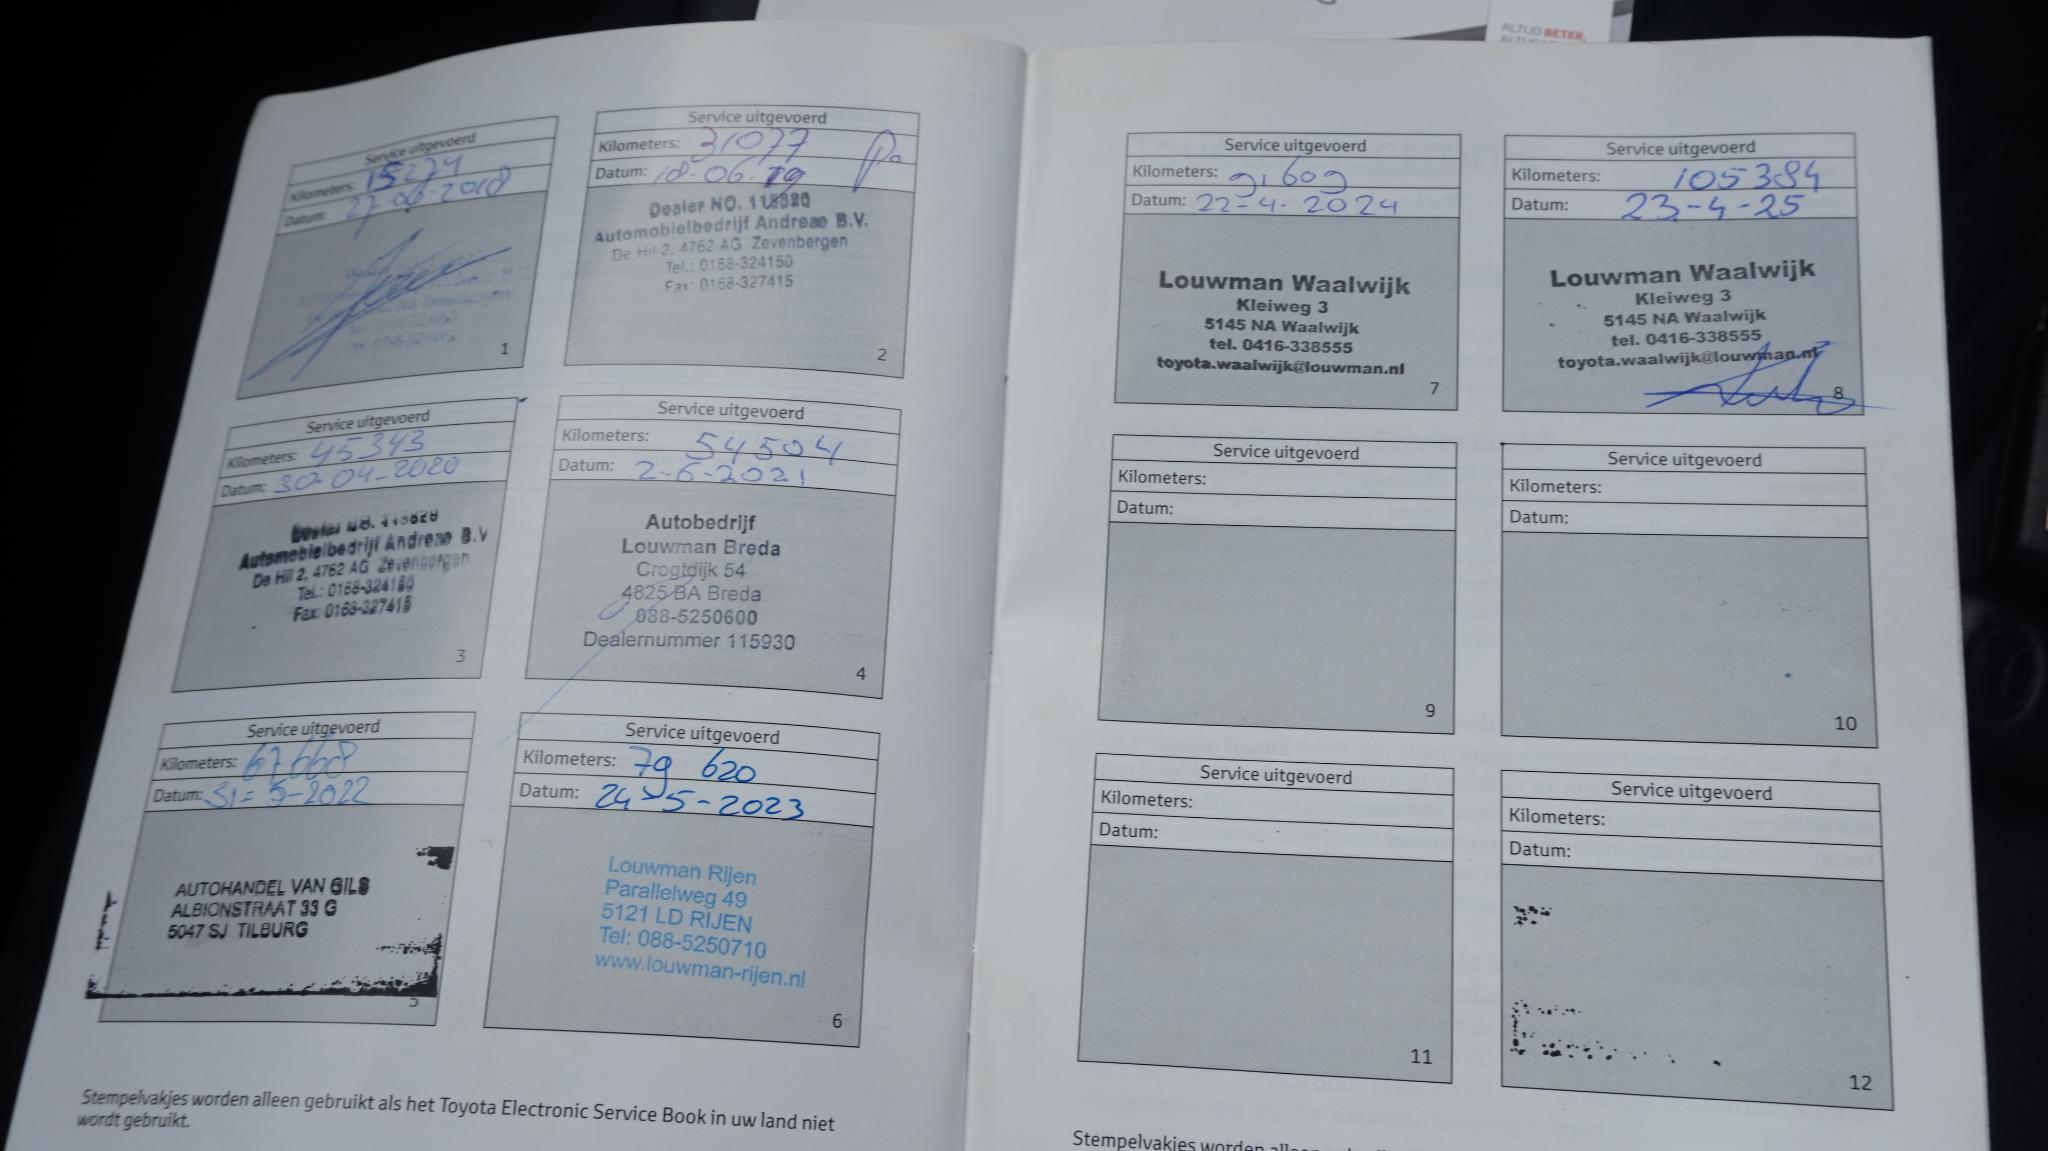 ALTIJD BETER,
Service uitgevoerd
Kilometers: 15274
Datum: 27-06-2018
1
Service uitgevoerd
Kilometers: 31077
Datum: 18-06-19
Dealer NO. 115820
Automobielbedrijf Andreae B.V.
De Hil 2, 4762 AG Zevenbergen
Tel.: 0168-324150
Fax: 0168-327415
2
Service uitgevoerd
Kilometers: 45343
Datum: 30-04-2020
Dealer NO. 115820
Automobielbedrijf Andreae B.V
De Hil 2, 4762 AG Zevenbergen
Tel.: 0168-324150
Fax: 0168-327415
3
Service uitgevoerd
Kilometers: 54504
Datum: 2-6-2021
Autobedrijf
Louwman Breda
Crogtdijk 54
4825 BA Breda
088-5250600
Dealernummer 115930
4
Service uitgevoerd
Kilometers: 67668
Datum: 31-5-2022
AUTOHANDEL VAN GILS
ALBIONSTRAAT 33 G
5047 SJ TILBURG
5
Service uitgevoerd
Kilometers: 79 620
Datum: 24-5-2023
Louwman Rijen
Parallelweg 49
5121 LD RIJEN
Tel: 088-5250710
www.louwman-rijen.nl
6
Stempelvakjes worden alleen gebruikt als het Toyota Electronic Service Book in uw land niet
wordt gebruikt.
Service uitgevoerd
Kilometers: 91609
Datum: 22-4-2024
Louwman Waalwijk
Kleiweg 3
5145 NA Waalwijk
tel. 0416-338555
toyota.waalwijk@louwman.nl
7
Service uitgevoerd
Kilometers: 105384
Datum: 23-4-25
Louwman Waalwijk
Kleiweg 3
5145 NA Waalwijk
tel. 0416-338555
toyota.waalwijk@louwman.nl
8
Service uitgevoerd
Kilometers:
Datum:
9
Service uitgevoerd
Kilometers:
Datum:
10
Service uitgevoerd
Kilometers:
Datum:
11
Service uitgevoerd
Kilometers:
Datum:
12
Stempelvakjes worden alleen